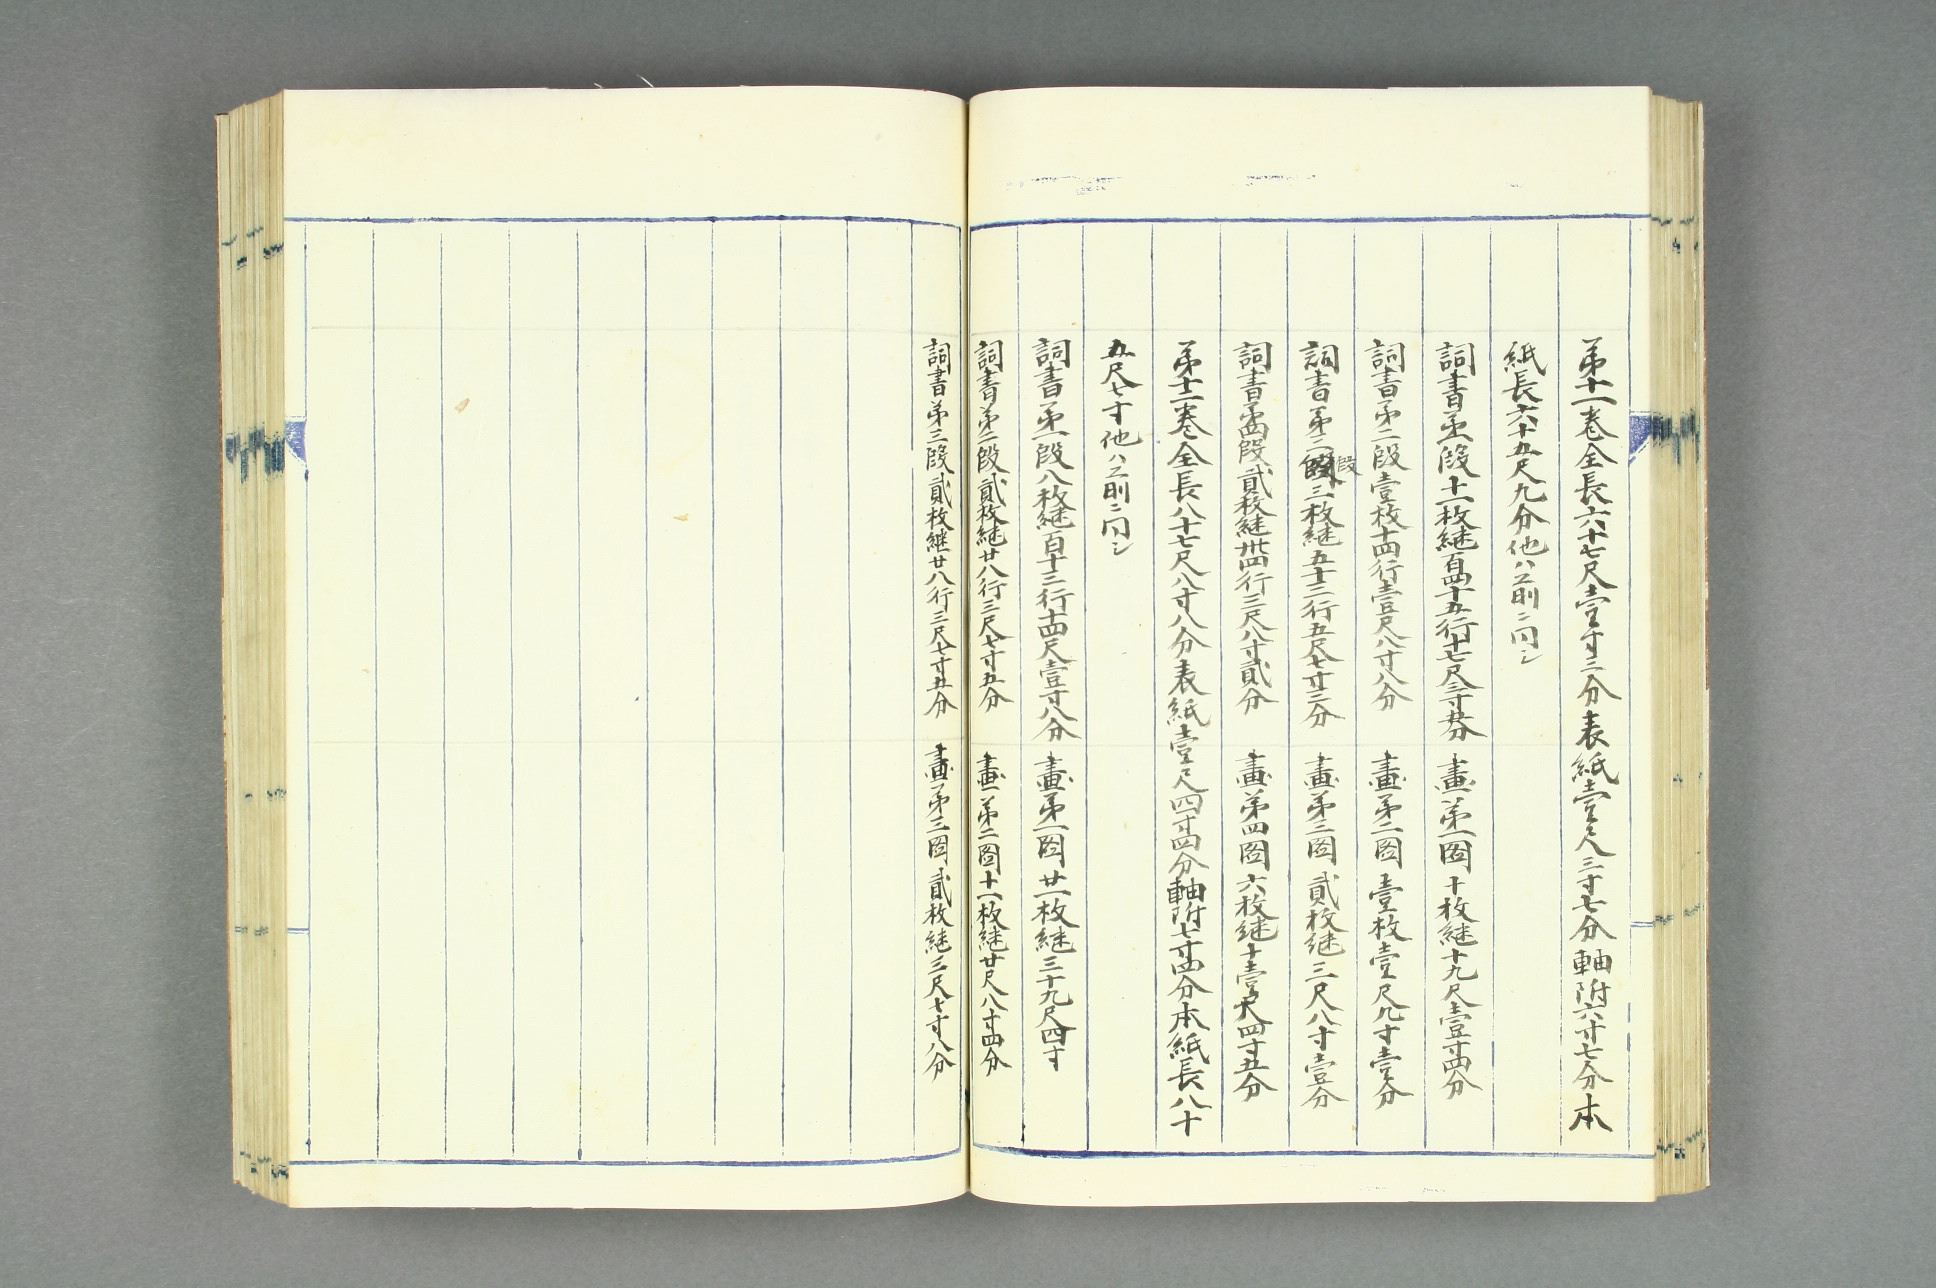 第十一巻全長六十七尺壹寸二分表紙壹尺三寸七分軸附六寸七分本
紙長六十五尺九分他ハ前ニ同シ
詞書第一段十一枚継百四十五行十七尺三寸五分　畫第一圖十枚継十九尺壹寸四分
詞書第二段壹枚十四行壹尺八寸八分　畫第二圖壹枚壹尺九寸壹分
詞書第三段三枚継五十三行五尺七寸三分　畫第三圖貳枚継三尺八寸壹分
詞書第四段貳枚継卅四行三尺八寸貳分　畫第四圖六枚継十壹尺四寸五分
第十二巻全長八十七尺八寸八分表紙壹尺四寸四分軸附七寸四分本紙長八十
五尺七寸他ハ前ニ同シ
詞書第一段八枚継百十三行十四尺壹寸八分　畫第一圖廿一枚継三十九尺四寸
詞書第二段貳枚継廿八行三尺七寸五分　畫第二圖十一枚継廿尺八寸四分
詞書第三段貳枚継廿八行三尺七寸五分　畫第三圖貳枚継三尺七寸八分